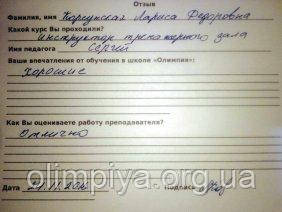 Отзыв
Фамилия, имя Коргунская Лариса Федоровна
Какой курс Вы проходили?
Инструктор тренажерного зала
Имя педагога Сергей
Ваши впечатления от обучения в школе «Олимпия»:
Хорошие
Как Вы оцениваете работу преподавателя?
Отлично
Дата Подпись
olimpiya.org.ua